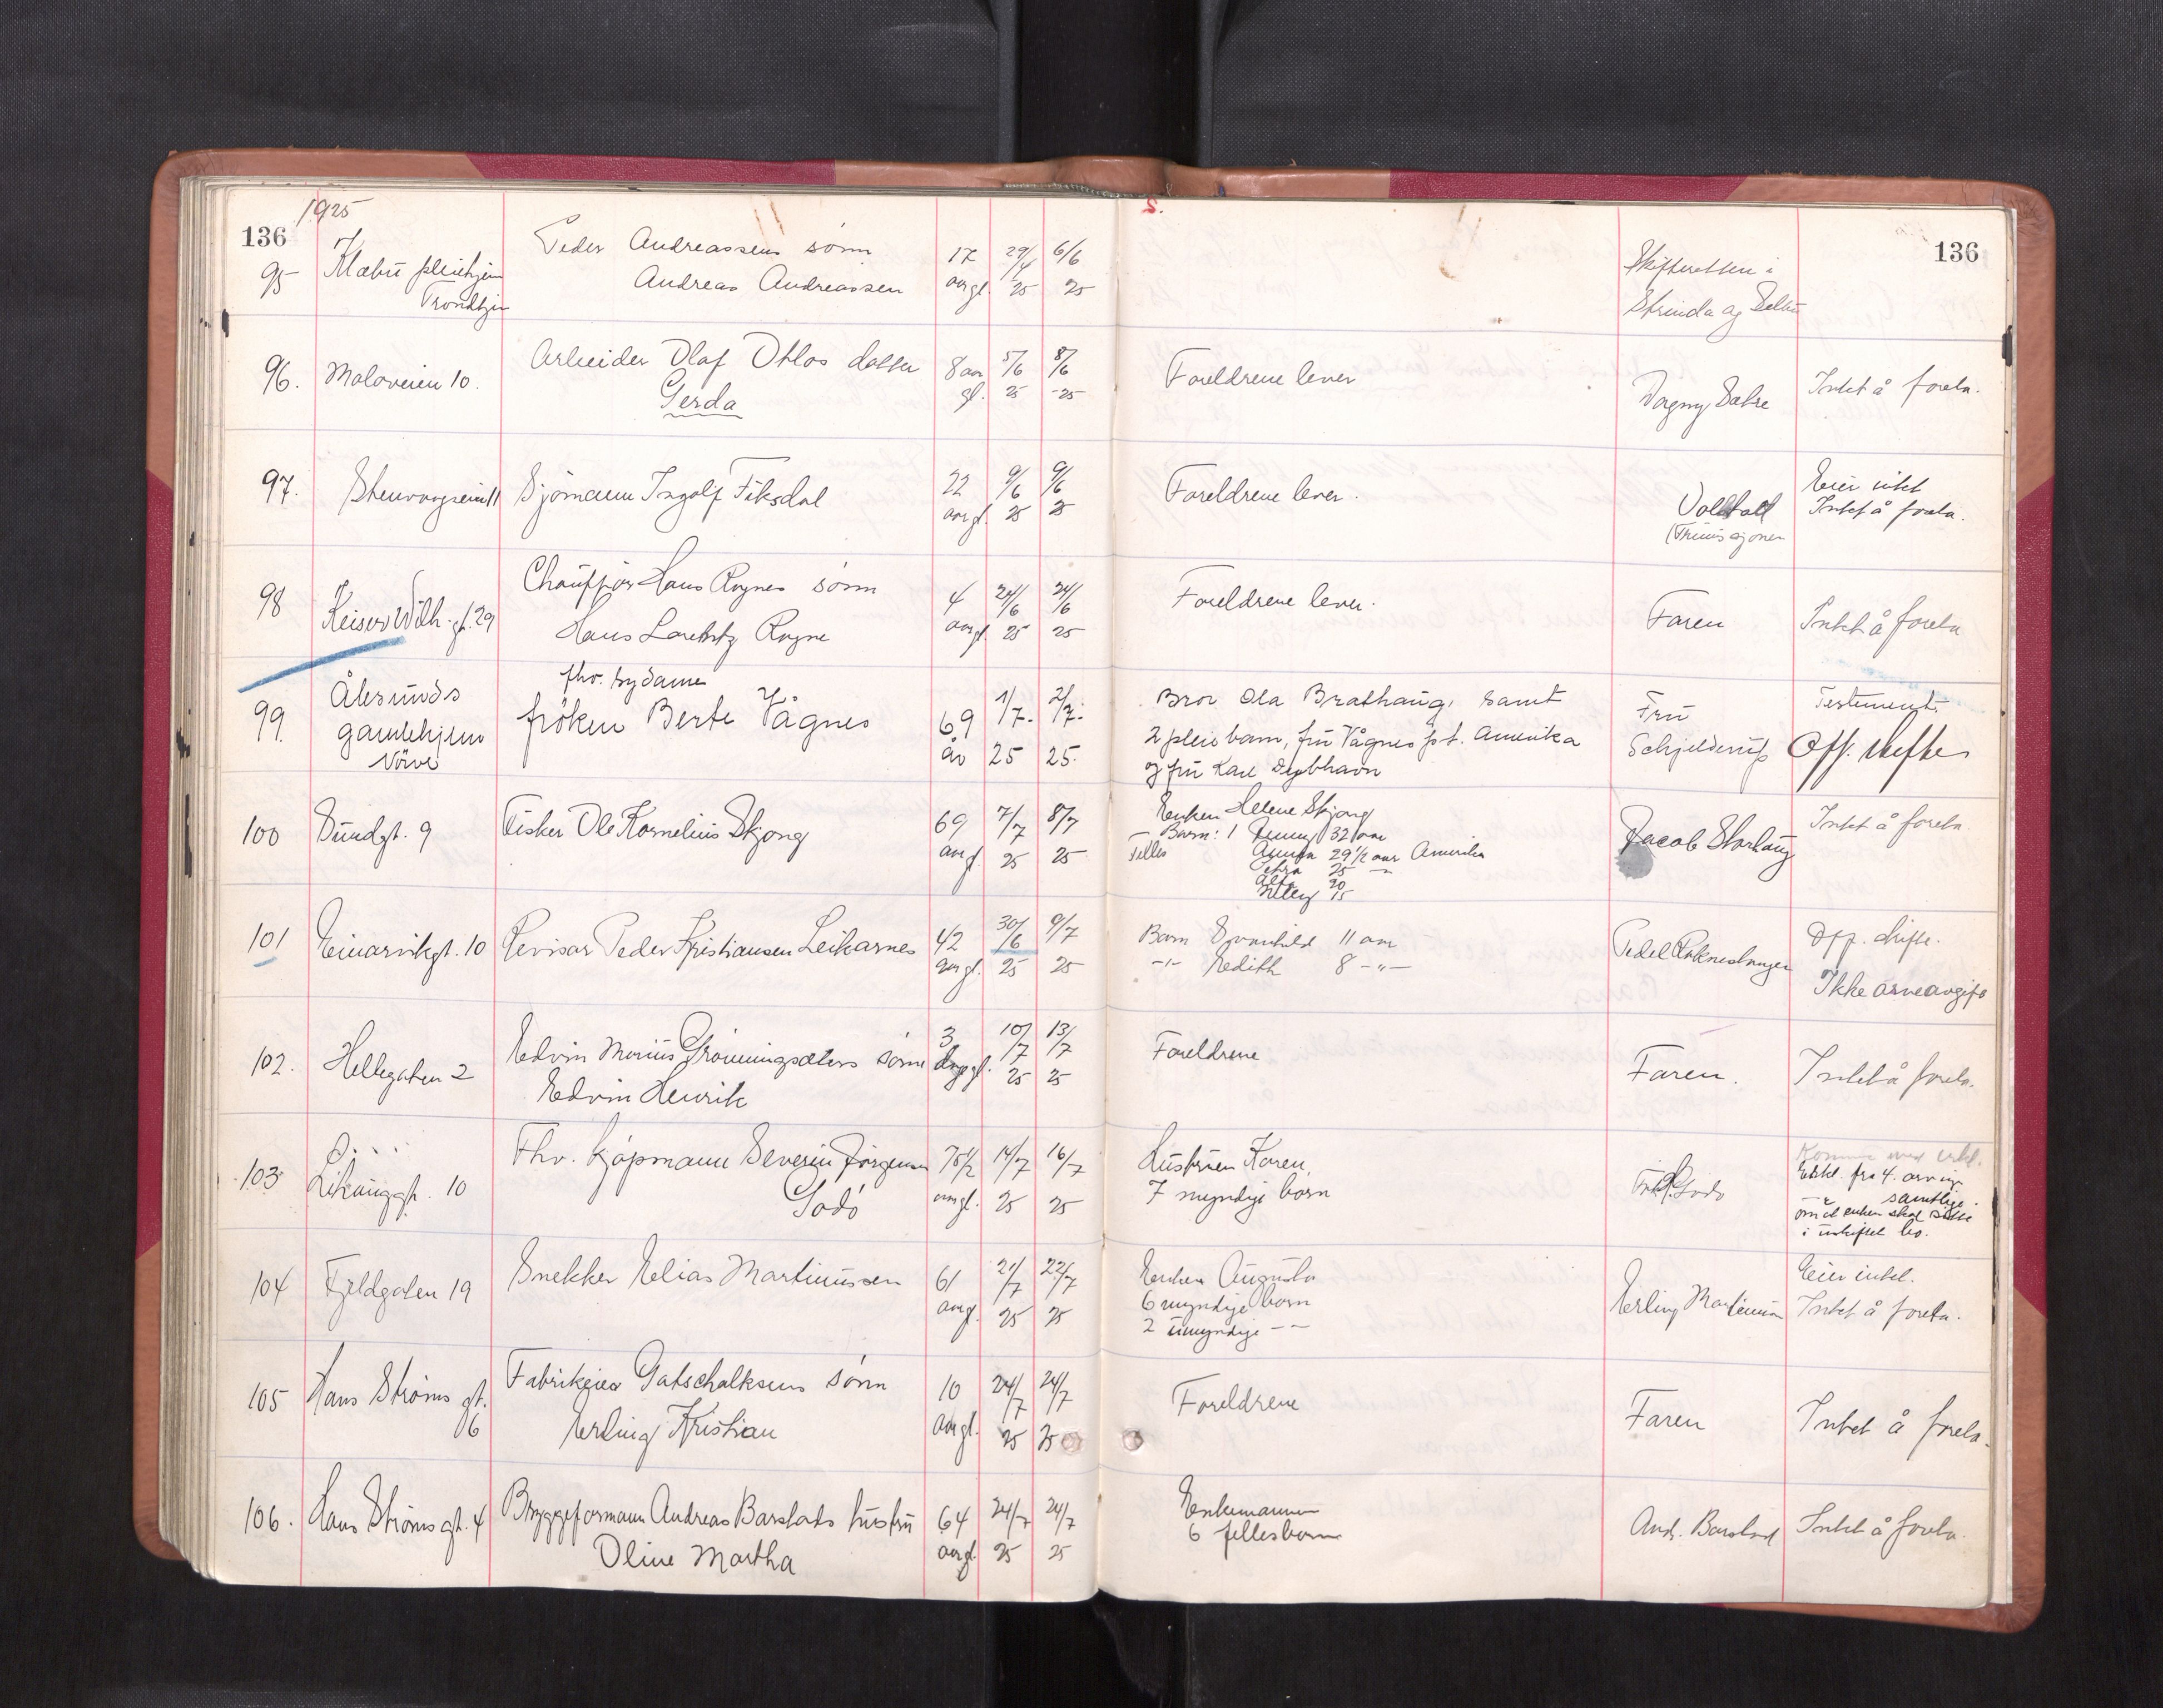 1925
136
136
95 Klæbu pleiehjem
Trondhjem
Peder Andreassens sønn
Andreas Andreassen
17 aar gl. 29/4 25 6/6 25
Skifteretten i
Strinda og Selbu
96. Moloveien 10.
Arbeider Olaf Otlos datter
Gerda
8 aar gl. 5/6 25 8/6 -25
Foreldrene lever
Dagny Sætre
Intet å foreta.
97. Stenvaagveien 11
Sjømann Ingolf Fiksdal
22 aar gl. 9/6 25 9/6 25
Foreldrene lever.
Volstad
Eier intet
Intet å foreta.
98 Keiser Wilh. gt. 29
Chauffør Hans Rognes sønn
Hans Lorentz Rogne
4 aar gl. 24/6 25 24/6 25
Foreldrene lever.
Faren
Intet å foreta
99. Ålesunds
gamlehjem
Nørve
fhv. sydame
frøken Berte Vågnes
69 år 1/7. 25 2/7. 25.
Bror Ola Brathaug, samt
2 pleiebarn, fru Vågnes p.t. Amerika
og fru Kare Dybhavn
Fru
Schjelderup
Testament.
Off. skifte
100 Sundgt. 9
Fisker Ole Kornelius Skjong
69 aar gl. 7/7 25 8/7 25
Enken Helene Skjong
Barn: 1 32 aar
Felles 29 1/2 aar Amerika
25 -"-
20
15
Jacob Storhaug
Intet å foreta
101 Einarvikgt. 10
Revisor Peder Kristiansen Leikarnes
42 aar gl. 30/6 25 9/7 25
Barn Svanhild 11 aar
-"- Edith 8 -"-
Off. skifte.
Ikke arveavgift
102. Hellegaten 2
Edvin Marius Grønningsæters sønn
Edvin Henrik
3 dage gl. 10/7 25 13/7 25
Foreldrene
Faren.
Intet å foreta.
103 Lihauggt. 10
Fhv. kjøpmann Severin Jørgensen
Godø
75 1/2 aar gl. 14/7 25 16/7 25
Hustruen Karen,
7 myndige barn
Godø
Komme med erkl.
Erkl. fra 4 arvinger
samtlige
om at enken skal sitte
i uskiftet bo.
104 Fjeldgaten 19
Snekker Elias Martinussen
61 aar gl. 21/7 25 22/7 25
Enken Augusta
6 myndige barn
2 umyndige -"-
Erling Martinussen
Eier intet.
Intet å foreta.
105 Hans Strøms gt.
6
Fabrikeier Gotschalksens sønn
Erling Kristian
10 aar gl. 24/7 25 24/7 25
Foreldrene
Faren
Intet å foreta.
106. Hans Strøms gt. 4
Bryggeformann Andreas Barstads hustru
Oline Martha
64 aar gl. 24/7 25 24/7 25
Enkemannen
6 fellesbarn
And. Barstad
Intet å foreta.